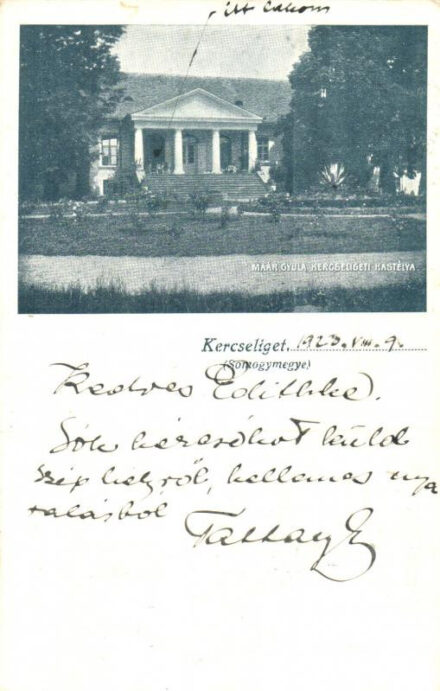 itt lakom
MAÁR GYULA KERCSELIGETI KASTÉLYA
Kercseliget, 1923. VIII. 9.
(Somogymegye)
Kedves Edithke!
Sok kézcsókot küld
szép helyről, kellemes nya
ralásból